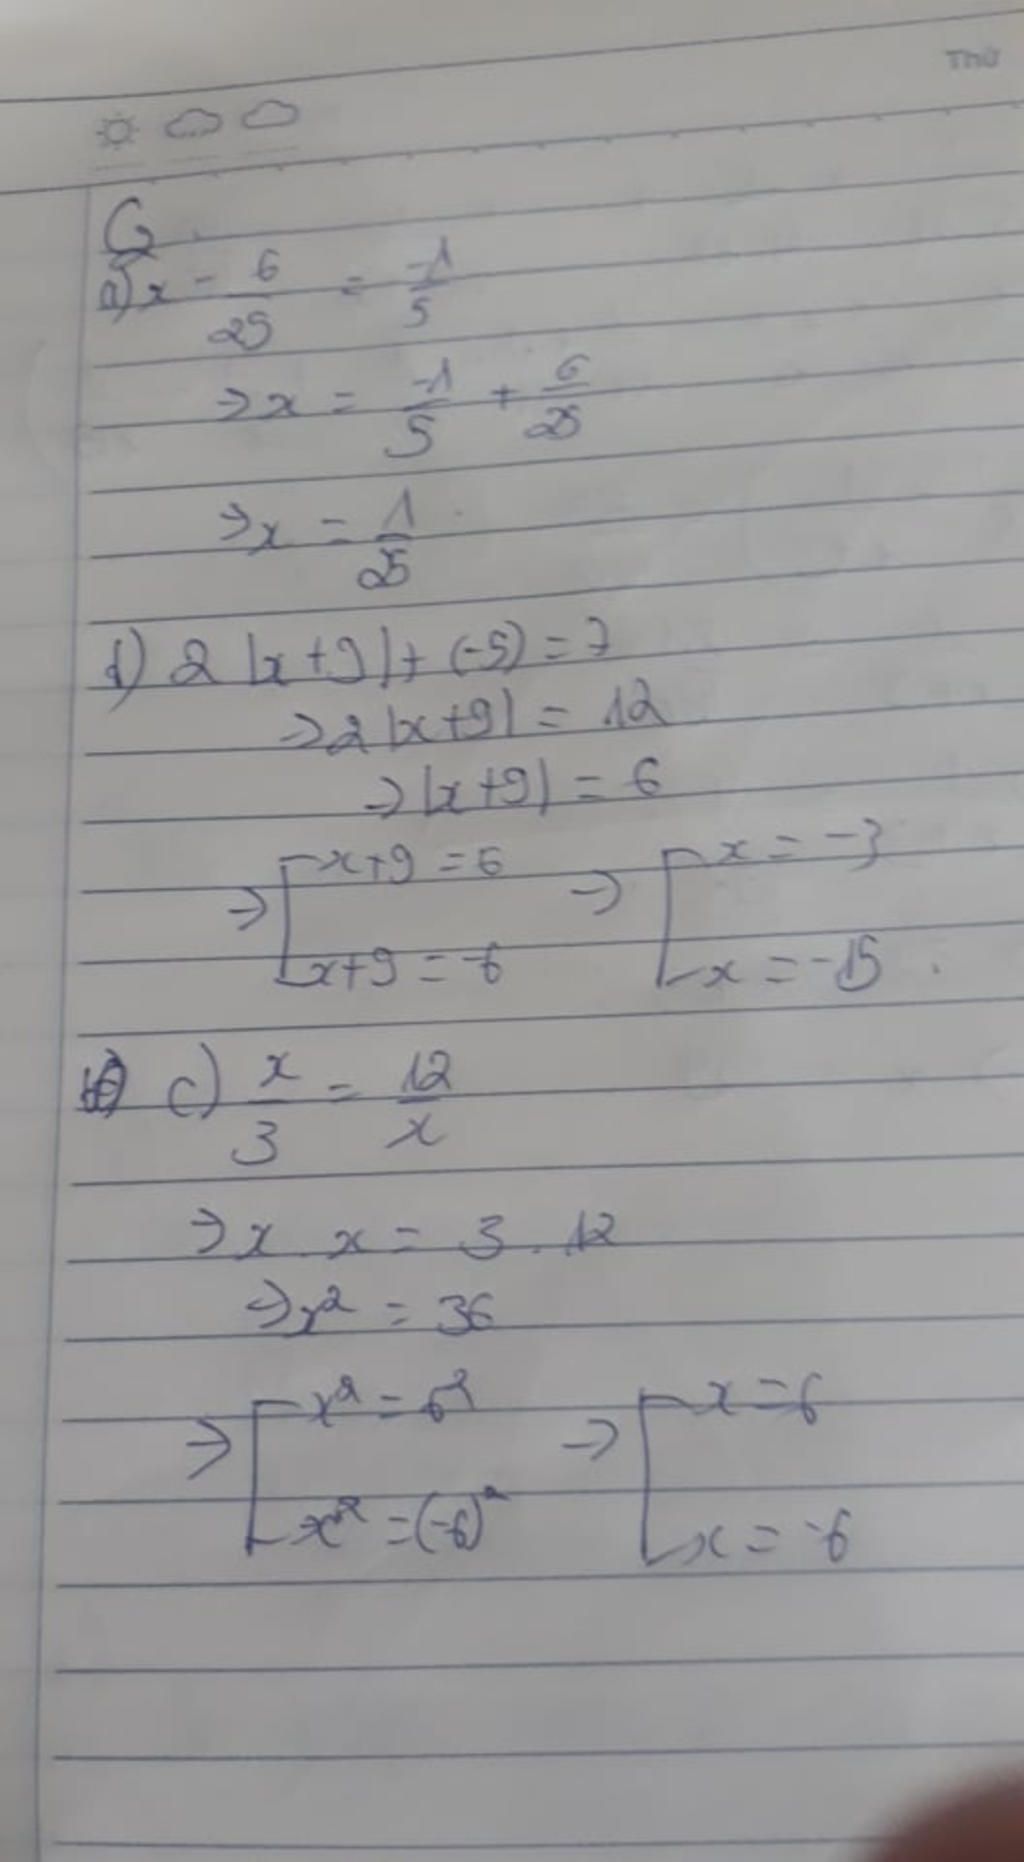 Thứ
G
a) x - 6/25 = -1/5
=> x = -1/5 + 6/25
=> x = 1/25
d) 2 |x+9| + (-5) = 7
=> 2|x+9| = 12
=> |x+9| = 6
=> [ x+9 = 6 => [ x = -3
x+9 = -6 x = -15
c) x/3 = 12/x
=> x . x = 3 . 12
=> x² = 36
=> [ x² = 6² => [ x = 6
x² = (-6)² x = -6